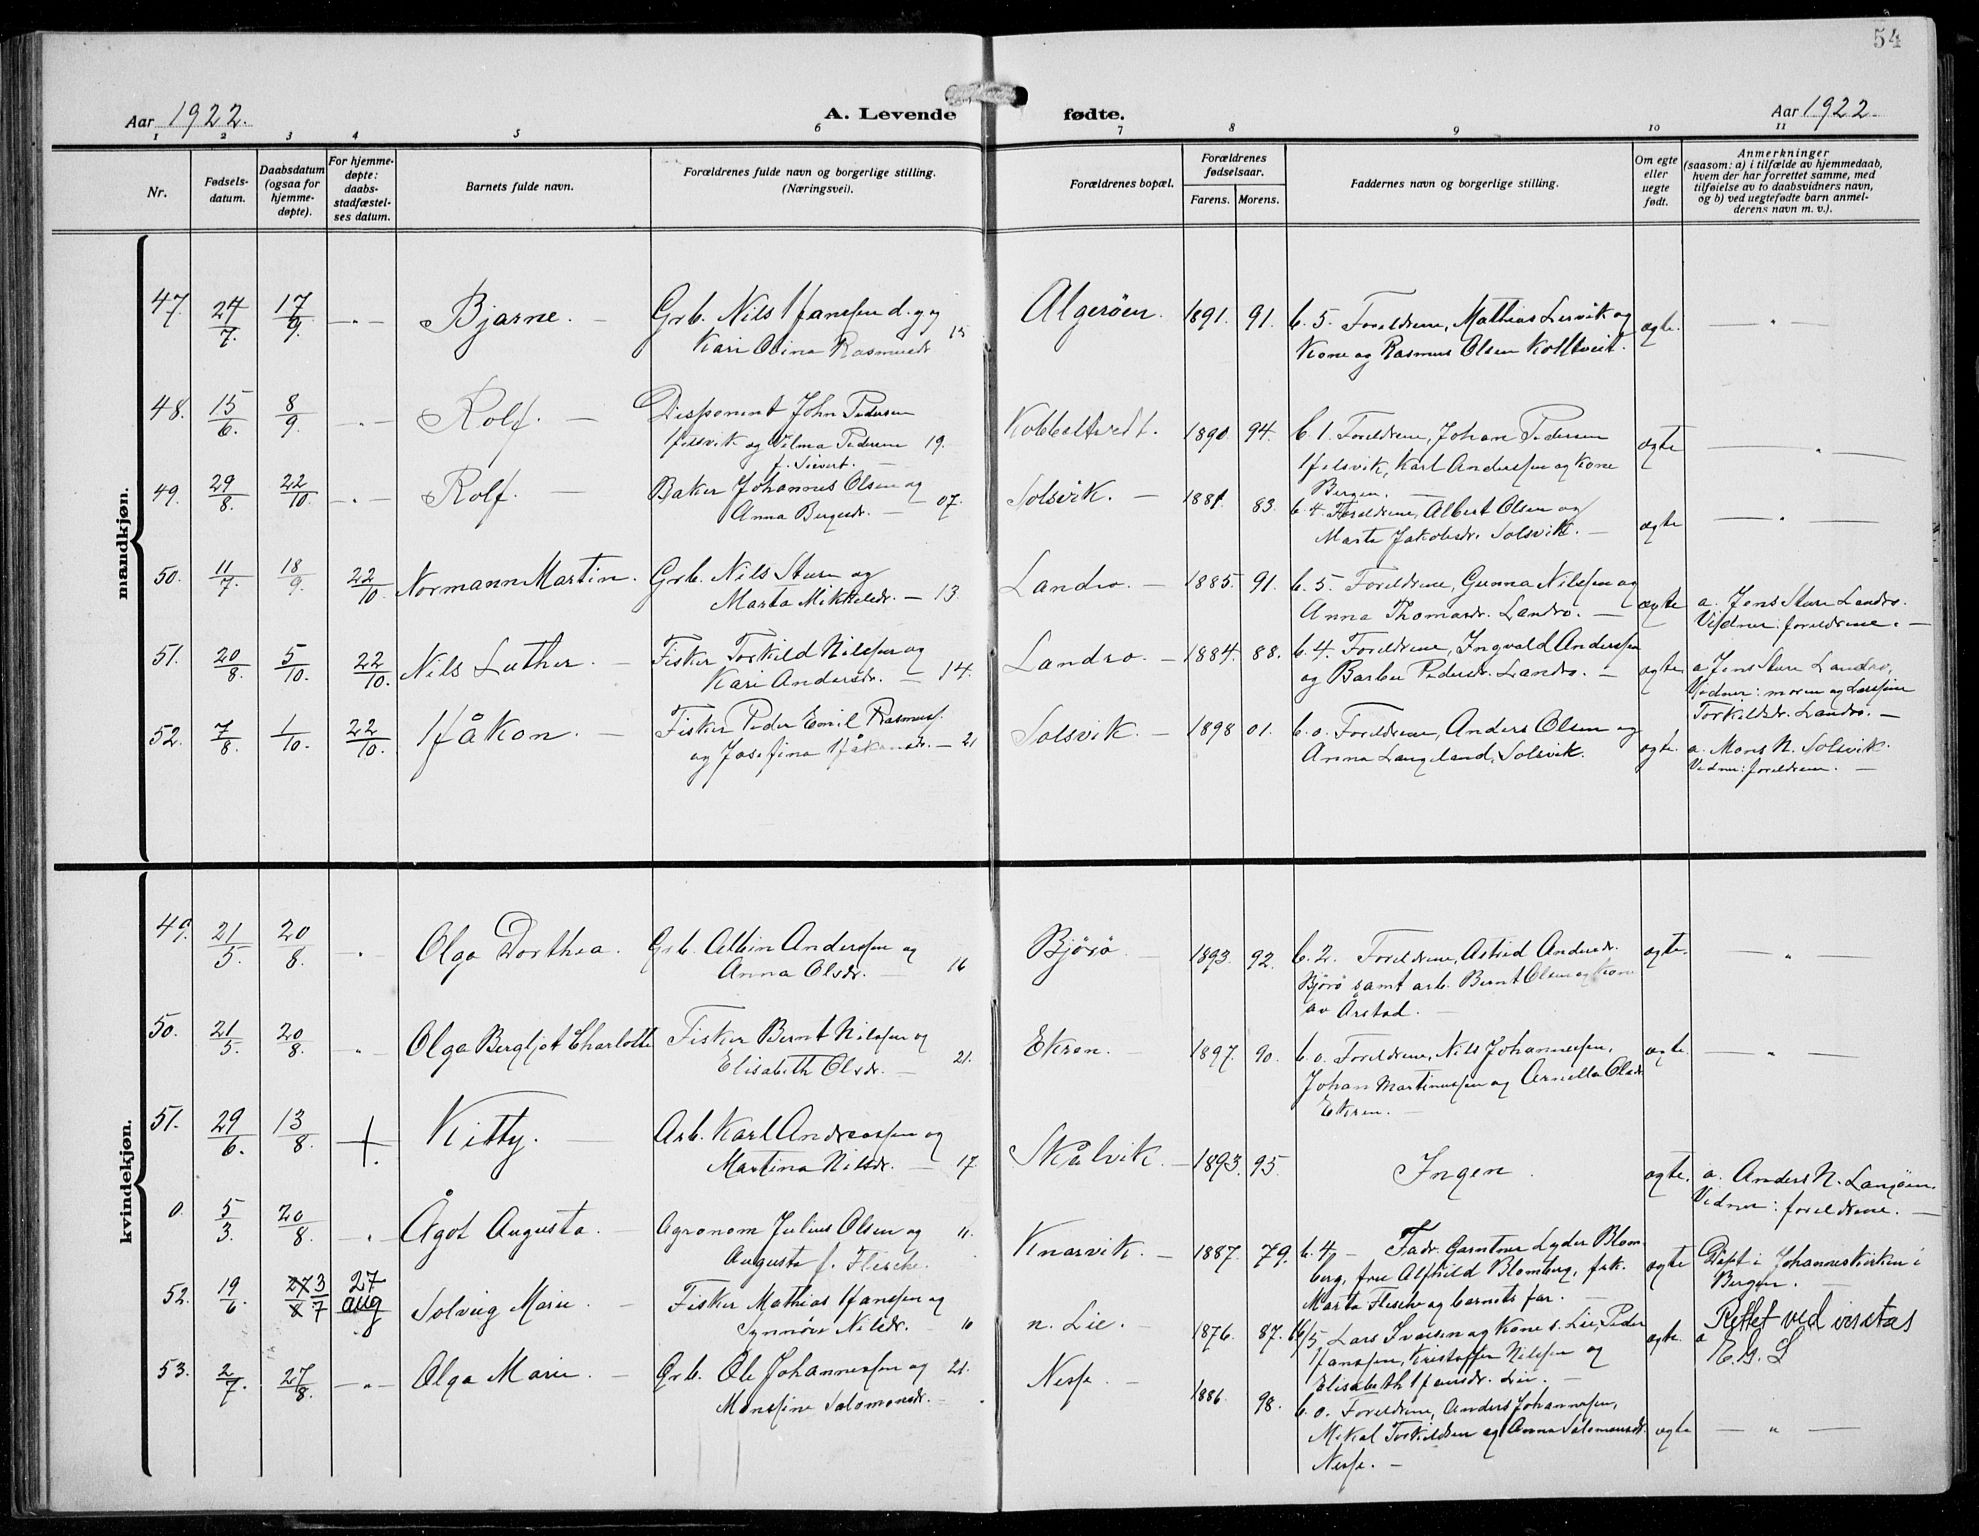 54
Aar 1922. A. Levende fødte. Aar 1922.
1 2 3 4 5 6 7 8 9 10 11
Nr.
Fødsels-
datum.
Daabsdatum
(ogsaa for
hjemme-
døpte).
For hjemme-
døpte:
daabs-
stadfæstel-
ses datum.
Barnets fulde navn.
Forældrenes fulde navn og borgerlige stilling.
(Næringsvei).
Forældrenes bopæl.
Forældrenes
fødselsaar.
Farens. Morens.
Faddernes navn og borgerlige stilling.
Om egte
eller
uegte
født.
Anmerkninger
(saasom: a) i tilfælde av hjemmedaab,
hvem der har forrettet samme, med
tilføielse av to daabsvidners navn,
og b) ved uegtefødte barn anmel-
derens navn m. v.).
mandkjøn.
47. 24/7. 17/9. - " - Bjarne. - Grb. Nils Hanssen d.y. og
Kari Olina Rasmusdr. 15
Algerøen. 1891. 91. b. 5. Foreldrene, Mathias Lervik og
Kone og Rasmus Olsen Kolltveit. ægte. - " -
48. 15/6. 8/9. - " - Rolf. - Disponent John Pedersen
Hilsvik og Vilma Pedersen 19.
f. Sievert. -
Kobbeltvedt. 1890. 94. b. 1. Foreldrene, Johan Pedersen
Hilsvik, Karl Anderssen og Kone
Bergen. - ægte - " -
49. 29/8. 22/10. - " - Rolf. - Baker Johannes Olsen og
Anna Bergesdr. - 07.
Solsvik. - 1881. 83. b. 4. Foreldrene, Albert Olsen og
Marta Jakobsdr. Solsvik. - ægte - " -
50. 11/7. 18/9. 22/10. Normann Martin. Grb. Nils Sture og
Marta Mikkelsdr. - 13.
Landro. - 1885. 91. b. 5. Foreldrene, Gunna Nilssen og
Anna Thomasdr. Landro. - ægte a. Jens Sture Landro.
Vidner: foreldrene. -
51. 20/8. 5/10. 22/10. Nils Luther. - Fisker Torkild Nilssen og
Kari Andersdr. - 14.
Landro. - 1884. 88. b. 4. Foreldrene, Ingvald Anderssen
og Barbu Pedersdr. Landro. - ægte. a. Jens Sture Landro,
Vidner: moren og
Torkildsdr. Landro. -
52. 7/8. 1/10. 22/10. Håkon. - Fisker Peder Emil Rasmuss.
og Josefina Håkonsdr. - 21
Solsvik. - 1898 01. b. 0. Foreldrene, Anders Olsen og
Anna Langeland, Solsvik. ægte. a. Mons N. Solsvik.
Vidner: foreldrene. -
kvindekjøn.
49. 21/5. 20/8. - " - Olga Dorthea. Grb. Albin Anderssen og
Anna Olsdr. - 16
Bjørø. - 1893. 92. b. 2. Foreldrene, Astrid Andersdr.
Bjørø samt arb. Bernt Olsen og Kone
av Årstad. - ægte. - " -
50. 21/5. 20/8. - " - Olga Bergljot Charlotte Fisker Bernt Nilssen og
Elisabeth Olsdr. - 21.
Ekren. - 1897. 90. b. 0. Foreldrene, Nils Johannessen,
Johan Martinussen og Arnella Olsdr
Ekren. - ægte. - " -
51. 29/6. 13/8. + Kitty. - Arb. Karl Andreassen og
Martina Nilsdr. - 17.
Skålvik. - 1893. 95. Ingen. ægte. a. Anders N. Langøen.
Vidner: foreldrene. -
0. 5/3. 20/8. - " - Ågot Augusta. - Agronom Julius Olsen og 11.
Augusta f. Flesche.
Knarvik. - 1887. 79. b. 4 - Fadr. Gartner Lyder Blom-
berg, fru Alfhild Blomberg, frk.
Marta Flesche og barnets far. - ægte Døpt i Johanneskirken i
Bergen. -
52. 19/6. 3/7 27 aug Solveig Marie. - Fisker Mathias Hanssen og
Synnøve Nilsdr. - 10
n. Lie. - 1876. 87. 16/5 Lars Ivarsen og Kone s. Lie, Peder
Hanssen, Kristoffer Nilssen og
Elisabeth Hansdr. Lie. - ægte. a Rettet ved
E. G. L
53. 2/7. 27/8. - " - Olga Marie. - Grb. Ole Johannessen og 21.
Monssine Salomonsdr. -
Nesse. - 1886. 98. b. 0. Foreldrene, Anders Johannessen,
Mikal Torkildsen og Anna Salomonsdr.
Nesse. - ægte - " -